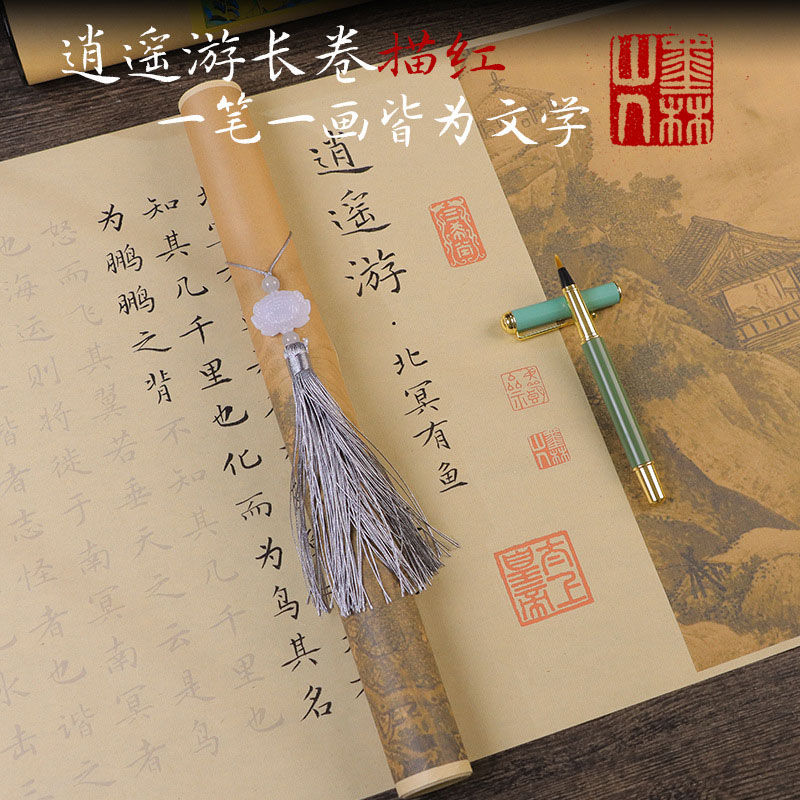 逍遥游长卷描红
一笔一画皆为文学
墨林山人
逍遥游·北冥有鱼
墨林山人
太上皇帝
知其几千里也化而为鸟其名
为鹏鹏之背不知其几千里也
怒而飞其翼若垂天之云是鸟
也海运则将徙于南冥南冥者
谐者志怪者也谐之
水击三